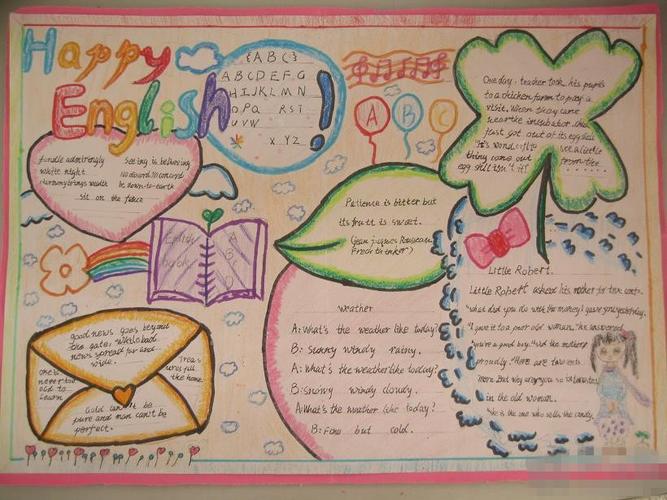 Happy
English!
{A B C}
A B C D E F G
H I J K L M N
O P Q R S T
U V W
X Y Z
A B C
One day, teacher took his pupils
to a chicken farm to pay a
visit. When they came
near the incubator, chic
just got out of its eggshell
"It's wonderful to see a little
thing come out from the
egg shell isn't it?
Seeing is believing
white night No discord, No concord
Harmony brings wealth be down-to-earth
sit on the fence
Patience is bitter but
its fruit is sweet.
(Jean Jacques Rousseau,
French thinker)
English
book
A
B
C
D
good news goes beyond
the gate, while bad
news spread far and
wide.
One is
never too
old to
learn
Treas
ures fill
the home
Gold can't be
pure and man can't be
perfect.
weather
A: What's the weather like today?
B: Sunny windy rainy.
A: What's the weather like today?
B: Snowy windy cloudy.
A: What's the weather like today?
B: Fine but cold.
Little Robert
Little Robert asked his mother for two cents.
"what did you do with the money I gave you yesterday.
"I gave it to a poor old woman," he answered
"you're a good boy," said the mother
proudly. "Here are two cents
more. But why are you so interested
in the old woman.
"She is the one who sells the candy.